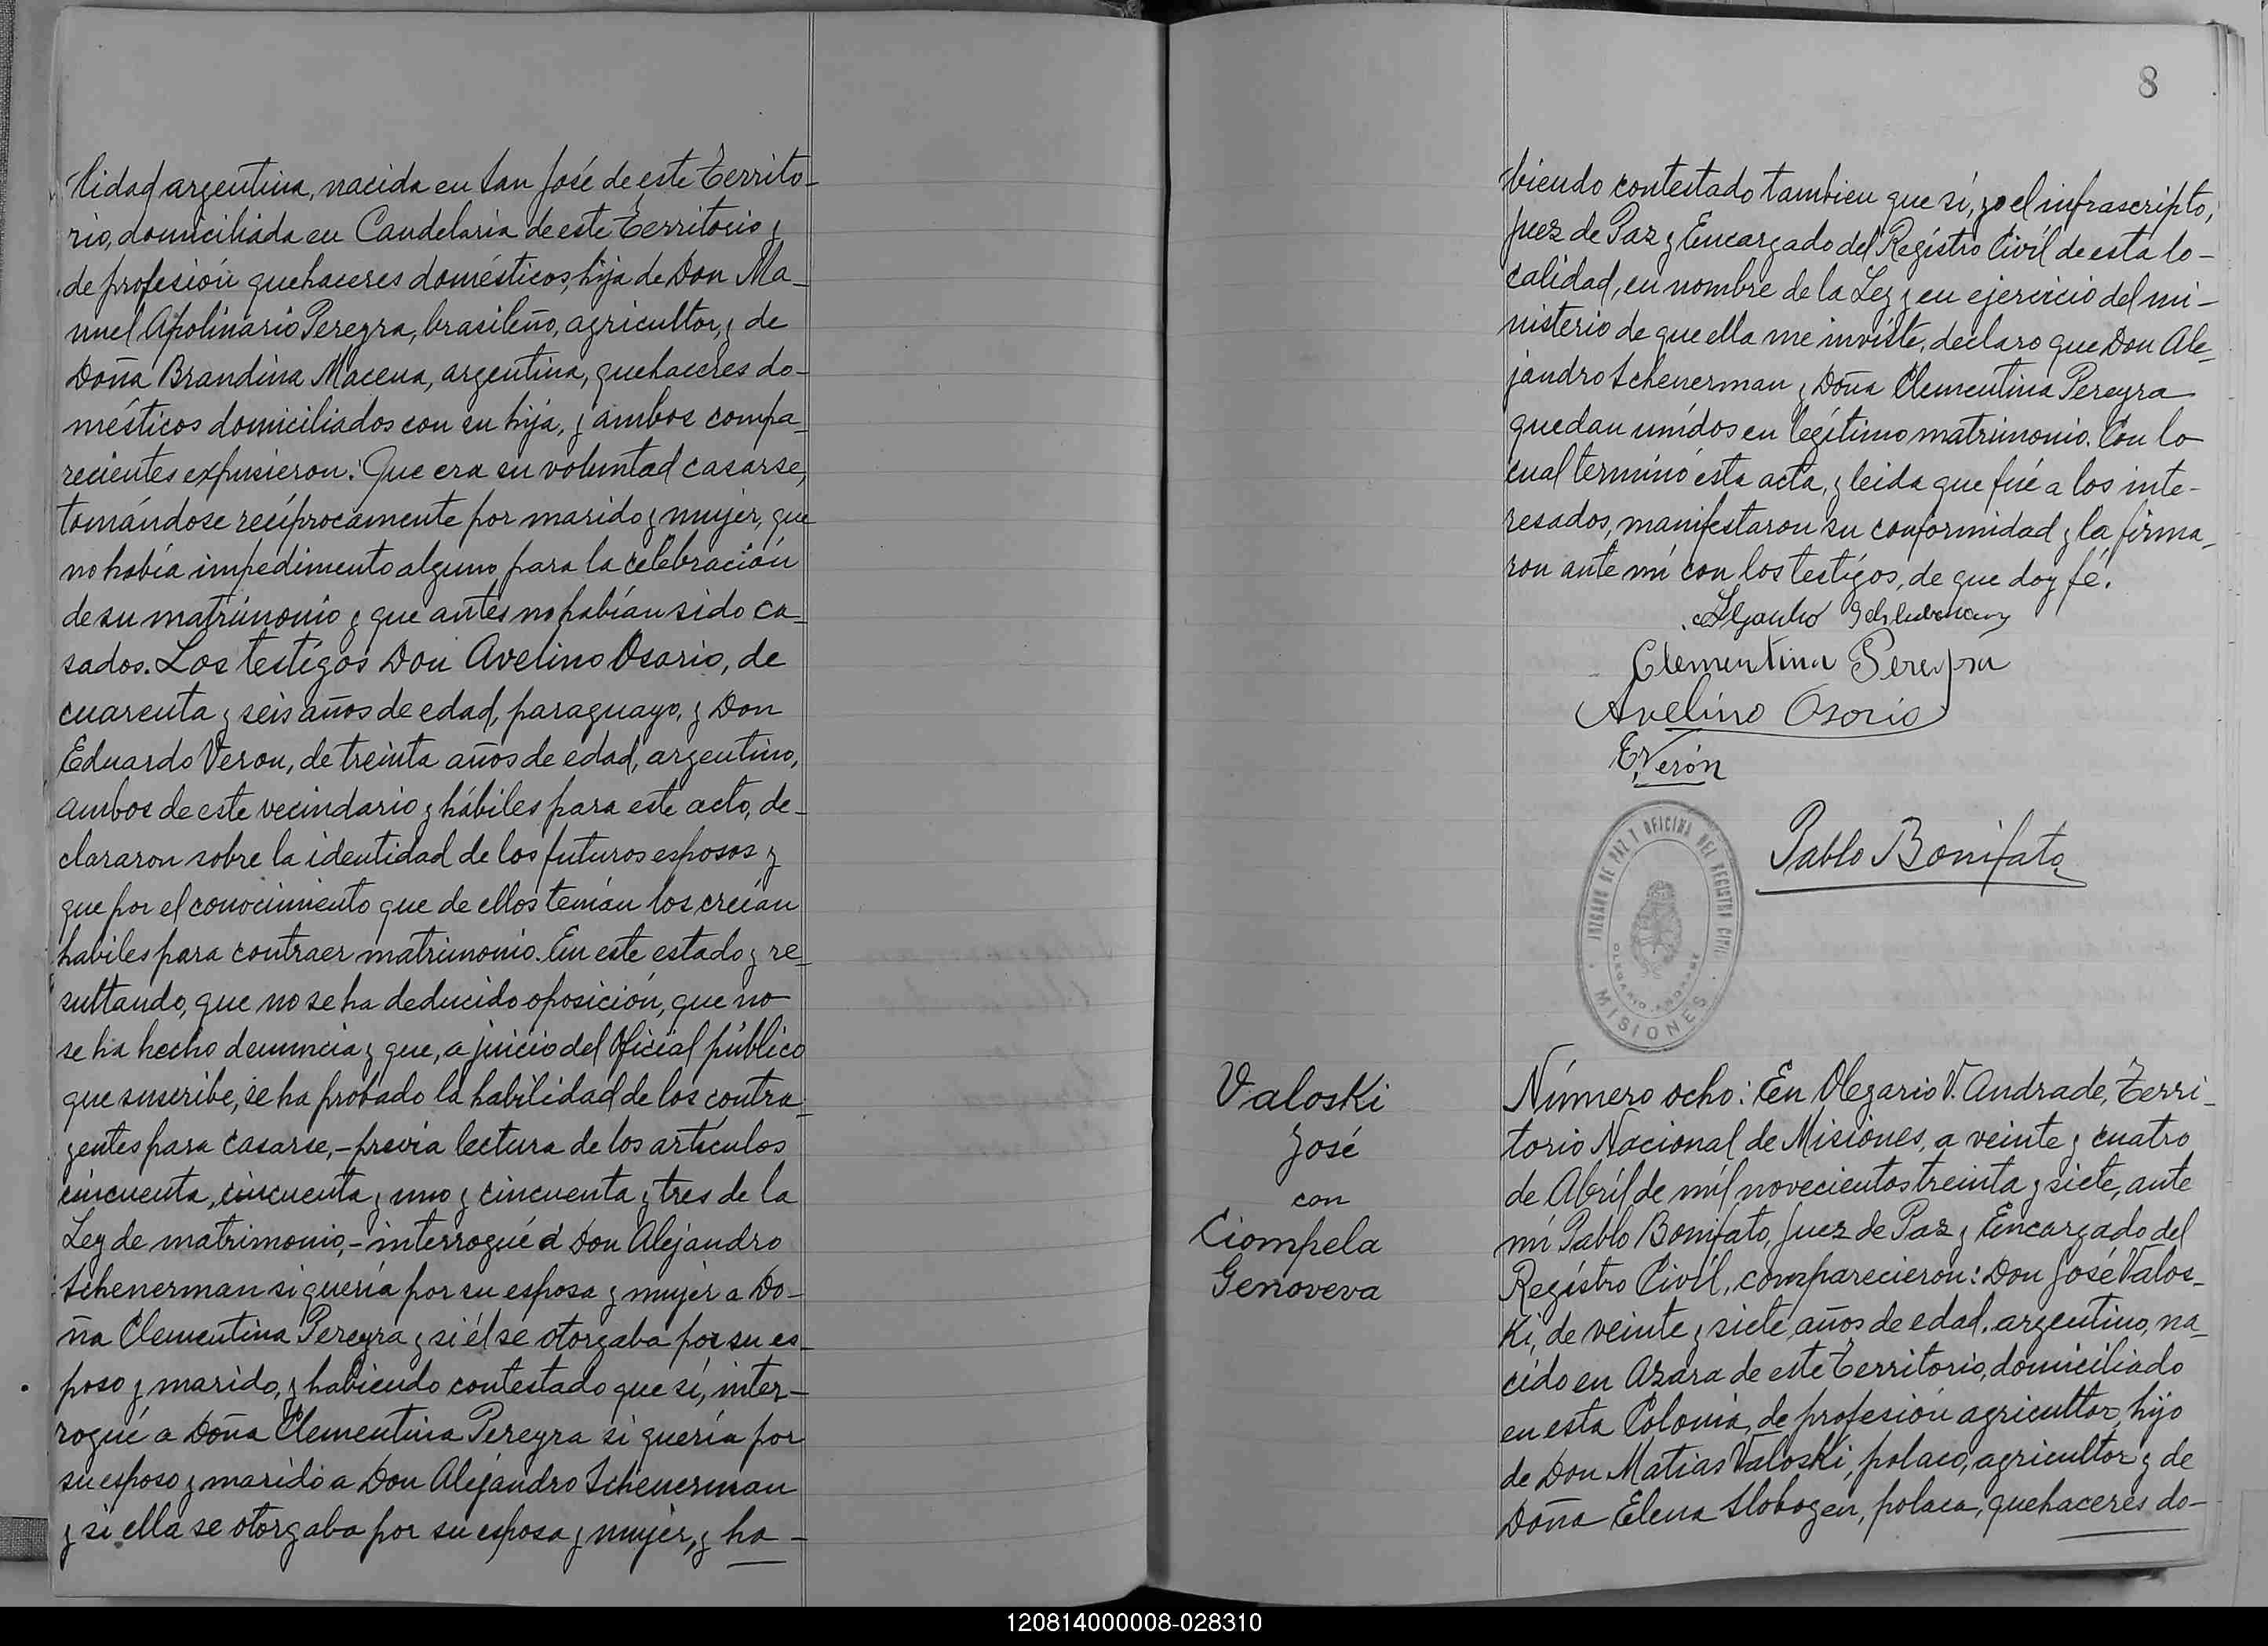 lidad argentina, nacida en San José de este Territo-
rio, domiciliada en Candelaria de este Territorio y
de profesión quehaceres domésticos, hija de Don Ma-
nuel Apolinario Pereyra, brasileño, agricultor, y de
Doña Brandina Macena, argentina, quehaceres do-
mésticos domiciliados con su hija, y ambos compa-
recientes expusieron: Que era su voluntad casarse,
tomándose recíprocamente por marido y mujer, que
no había impedimento alguno para la celebración
de su matrimonio y que antes no habían sido ca-
sados. Los testigos Don Avelino Osorio, de
cuarenta y seis años de edad, paraguayo, y Don
Eduardo Veron, de treinta años de edad, argentino,
ambos de este vecindario y hábiles para este acto, de-
clararon sobre la identidad de los futuros esposos y
que por el conocimiento que de ellos tenían los creían
habiles para contraer matrimonio. En este estado y re-
sultando, que no se ha deducido oposición, que no
se ha hecho denuncia y que, a juicio del Oficial público
que suscribe, se ha probado la habilidad de los contra-
yentes para casarse, - previa lectura de los artículos
cincuenta, cincuenta y uno y cincuenta y tres de la
Ley de matrimonio, - interrogué a Don Alejandro
Schenerman si quería por su esposa y mujer a Do-
ña Clementina Pereyra y si él se otorgaba por su es-
poso y marido, y habiendo contestado que sí, inter-
rogué a Doña Clementina Pereyra si quería por
su esposo y marido a Don Alejandro Schenerman
y si ella se otorgaba por su esposa y mujer, y ha-
8
biendo contestado tambien que sí, yo el infrascripto,
Juez de Paz y Encargado del Registro Civil de esta lo-
calidad, en nombre de la Ley y en ejercicio del mi-
nisterio de que ella me inviste, declaro que Don Ale-
jandro Schenerman y Doña Clementina Pereyra
quedan unidos en legítimo matrimonio. Con lo
cual terminó esta acta, y leida que fué a los inte-
resados, manifestaron su conformidad y la firma-
ron ante mí con los testigos, de que doy fé.
Clementina Pereyra
Avelino Osorio
E Verón
Pablo Bonifato
JUZGADO DE PAZ Y OFICINA DEL REGISTRO CIVIL
OLEGARIO ANDRADE
MISIONES
Valoski
José
con
Ciompela
Genoveva
Número ocho: En Olegario V. Andrade, Terri-
torio Nacional de Misiones, a veinte y cuatro
de Abríl de mil novecientos treinta y siete, ante
mí Pablo Bonifato, Juez de Paz y Encargado del
Registro Civil, comparecieron: Don José Valos-
ki, de veinte y siete años de edad, argentino, na-
cido en Azara de este Territorio, domiciliado
en esta Colonia, de profesión agricultor, hijo
de Don Matias Valoski, polaco, agricultor y de
Doña Elena Slobogen, polaca, quehaceres do-
120814000008-028310